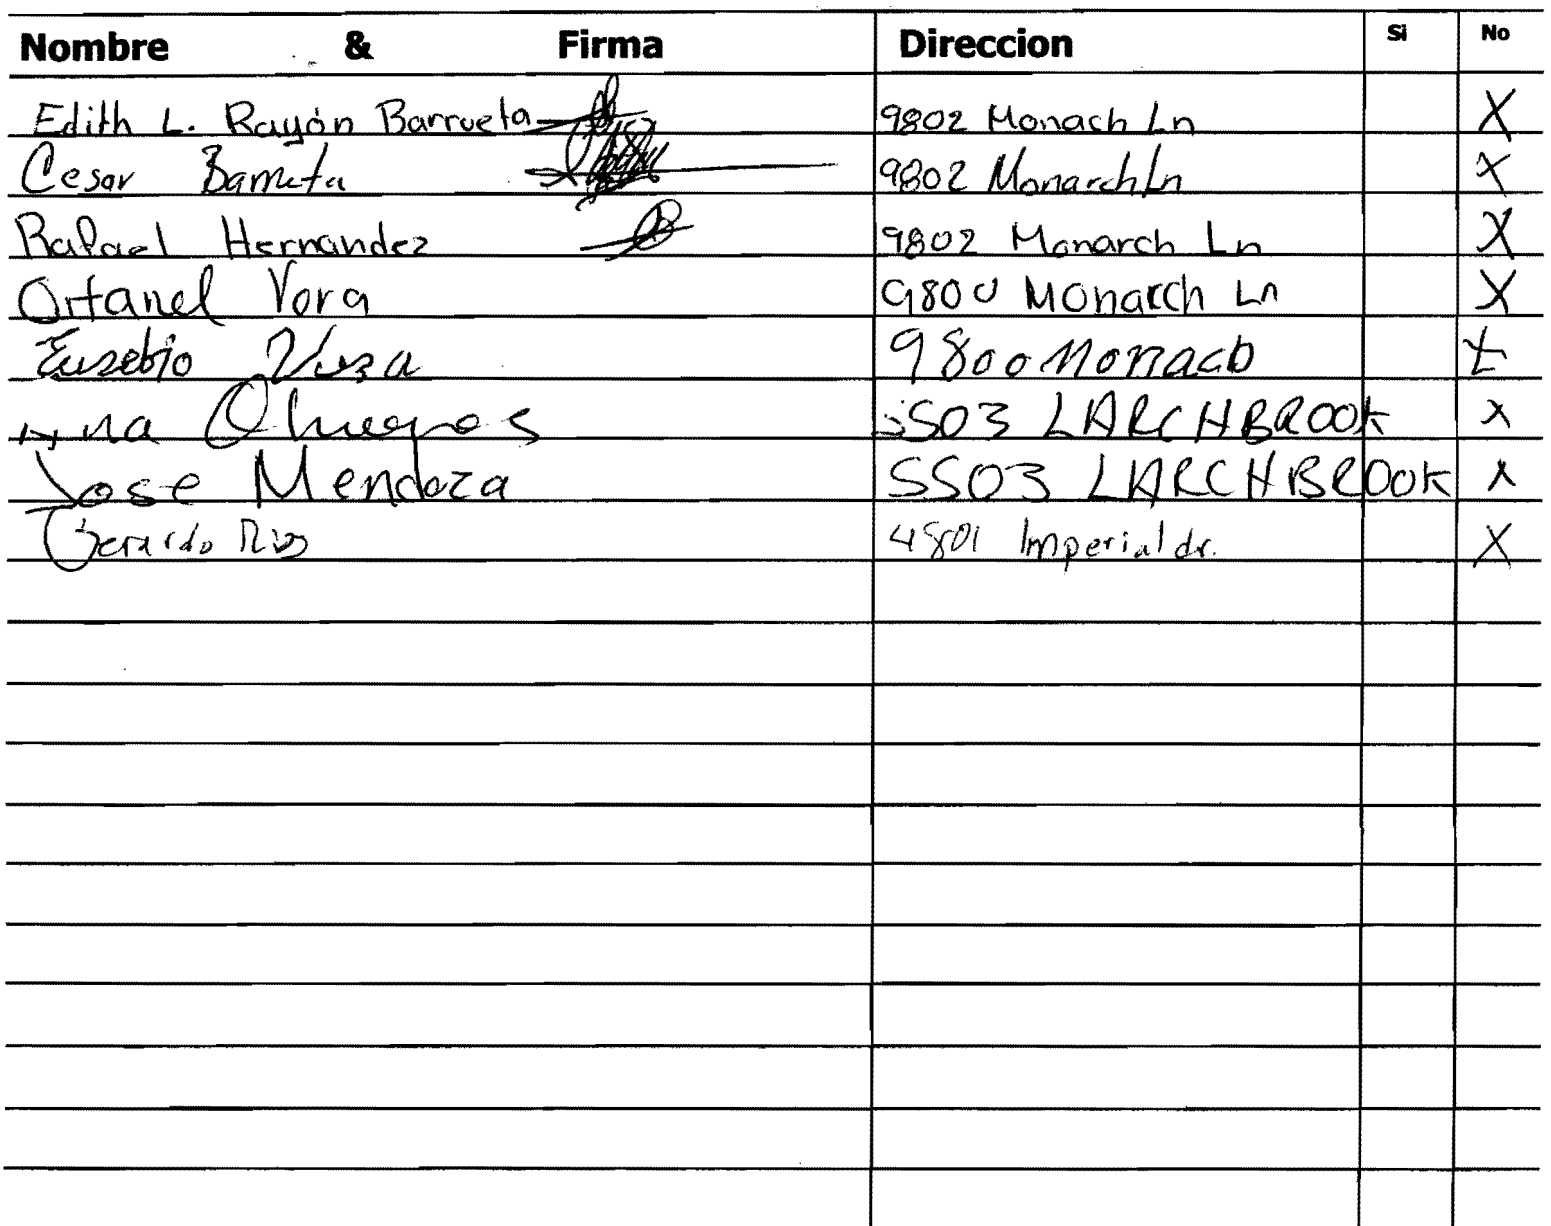 Nombre & Firma Direccion Si No
Edith L. Rayón Barrueta 9802 Monach Ln X
Cesar Barrueta 9802 Monarch Ln X
Rafael Hernandez 9802 Monarch Ln X
Vera 9800 Monarch Ln X
Eusebio Vera 9800 X
5503 LARCHBROOK X
Jose Mendoza 5503 LARCHBROOK X
Gerardo 4801 Imperial dr. X